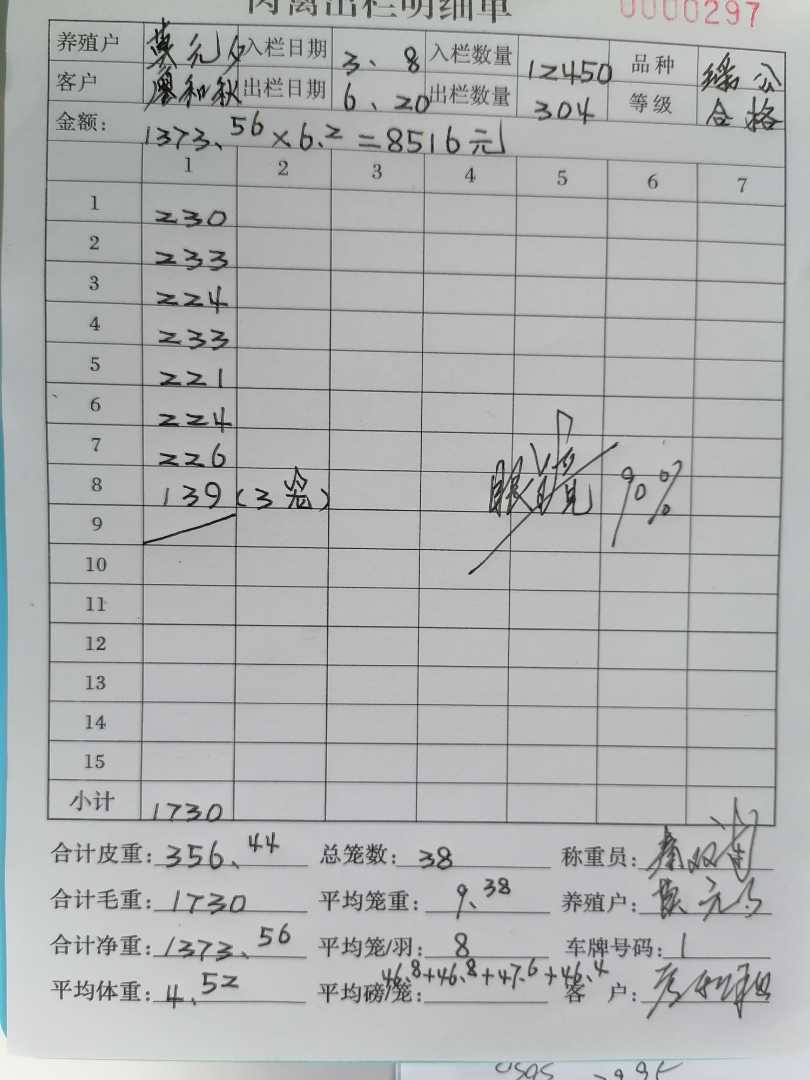 肉禽出栏明细单 0000297
养殖户 入栏日期 3、8 入栏数量 12450 品种 瑶公
客户 廖和秋 出栏日期 6、20 出栏数量 304 等级 合格
金额: 1373、56×6.2=8516元
1 2 3 4 5 6 7
1 230
2 233
3 224
4 233
5 221
6 224
7 226
8 139(3笼) 眼镜 90%
9
10
11
12
13
14
15
小计 1730
合计皮重: 356、44 总笼数: 38 称重员:
合计毛重: 1730 平均笼重: 9、38 养殖户:
合计净重: 1373、56 平均笼/羽: 8 车牌号码: 1
平均体重: 4、52 平均磅/笼: 46.8+46.8+47.6+46.4 客户: